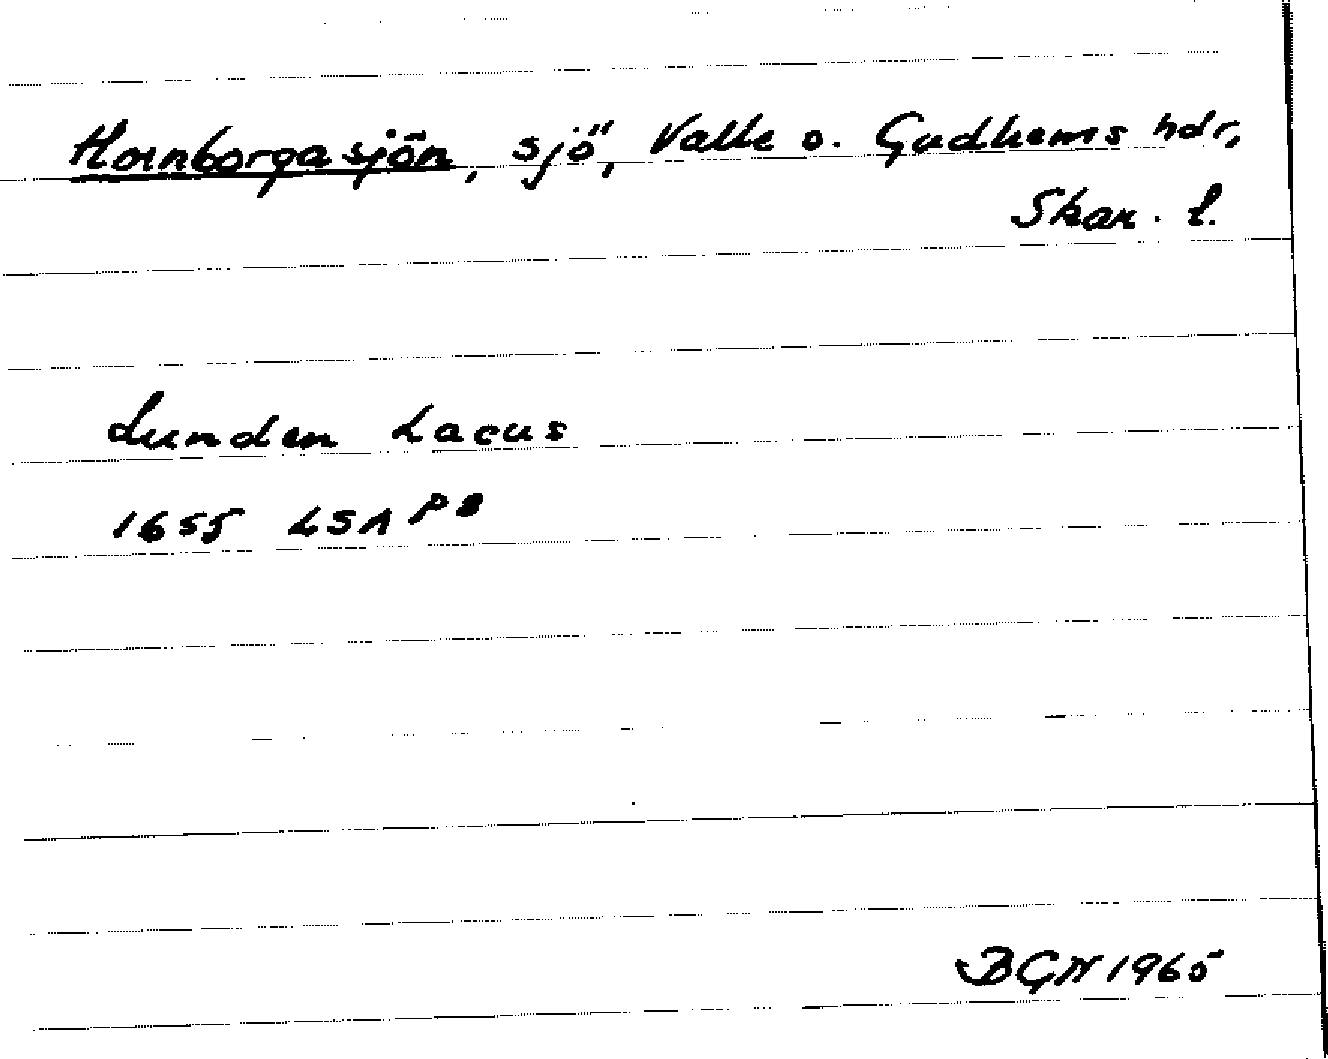 Hornborgasjön, sjö, Valle o. Gudhems hdr,
Skar. l.
Lunden Lacus
1655 LSA P8
BGN 1965